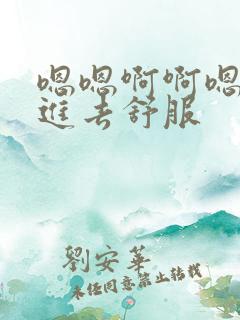 嗯嗯啊啊嗯
進去舒服
劉安華
未经同意禁止转载